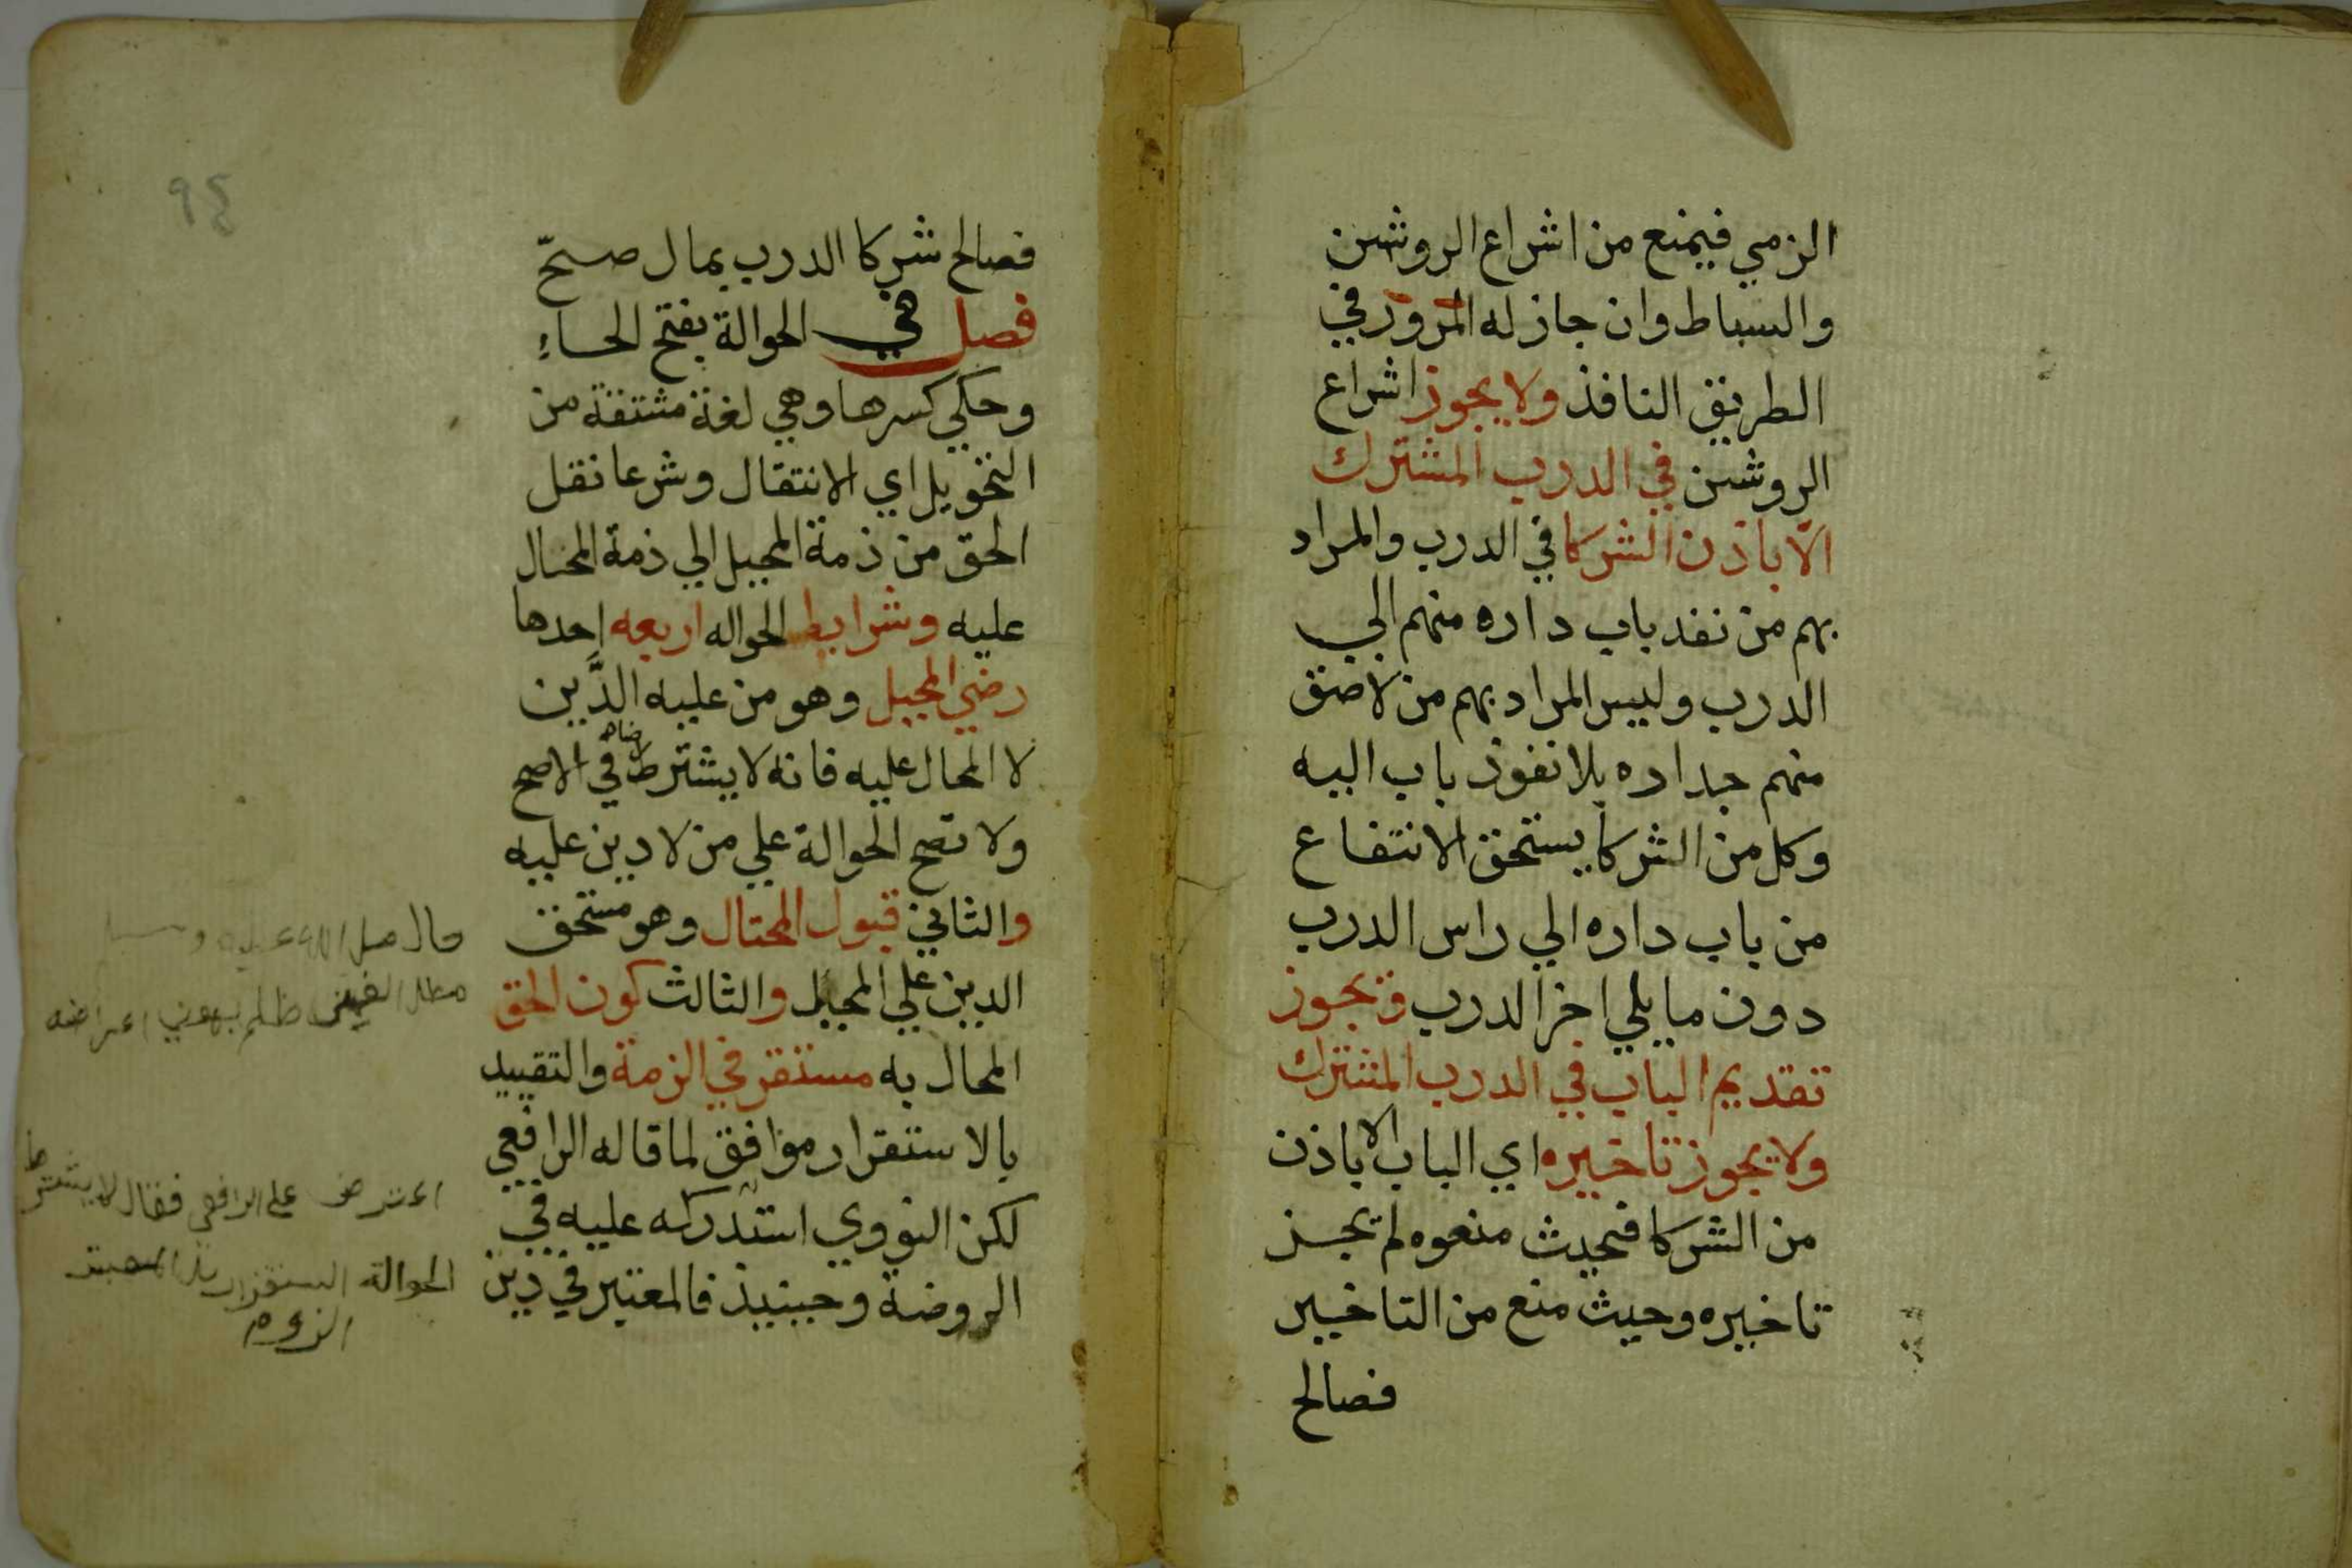 الزمي فيمنع من اشراع الروشن
والسباط وان جاز له المرور في
الطريق النافذ ولا يجوز اشراع
الروشن في الدرب المشترك
الّا باذن الشركا في الدرب والمراد
بهم من نفد باب داره منهم الي
الدرب وليس المراد بهم من لاصق
منهم جداره بلا نفوذ باب اليه
وكل من الشركا يستحق الانتفاع
من باب داره الي راس الدرب
دون ما يلي اخر الدرب ويجوز
تقديم الباب في الدرب المشترك
ولا يجوز تاخيره اي الباب الا باذن
من الشركا فحيث منعوه لم يجز
تاخيره وحيث منع من التاخير
فصالح
٩٤
فصالح شركا الدرب بمال صحّ
فصل في الحوالة بفتح الحاء
وحكي كسرها وهي لغة مشتقة من
التحويل اي الانتقال وشرعا نقل
الحق من ذمة المحيل الي ذمة المحال
عليه وشرايط الحواله اربعه احدها
رضي المحيل وهو من عليه الدَّين
لا المحال عليه فانه لا يشترط رضاه في الاصح
ولا تصح الحوالة علي من لا دين عليه
والثاني قبول المحتال وهو مستحق
الدين علي المحيل والثالث كون الحق
المحال به مستقر في الزمة والتقييد
بالاستقرار موافق لما قاله الرافعي
لكن النووي استدركه عليه في
الروضة وحينيذ فالمعتبر في دين
قال صلى الله عليه وسلم
مطل الغني ظلم
اعترض على الرافعي فقال لا يشترط
الحوالة